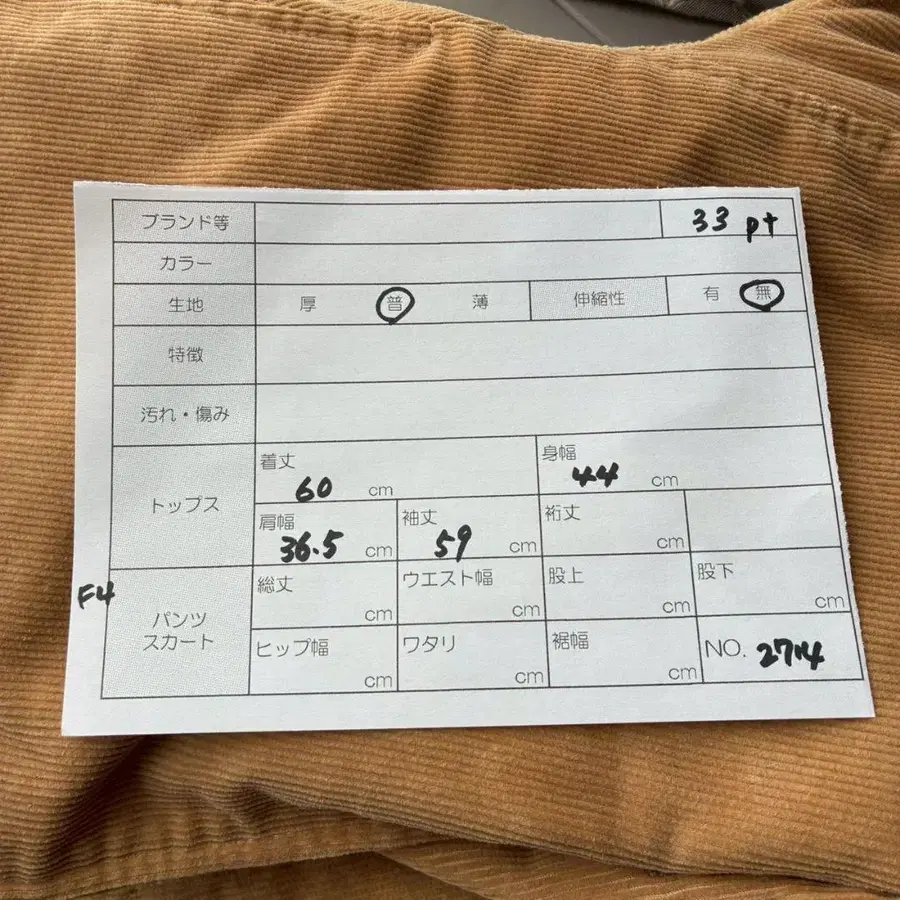 ブランド等 33 pt
カラー
生地 厚 普 薄 伸縮性 有 無
特徴
汚れ・傷み
トップス
着丈 60 cm 身幅 44 cm
肩幅 36.5 cm 袖丈 59 cm 裄丈 cm
F4
パンツ
スカート
総丈 cm ウエスト幅 cm 股上 cm 股下 cm
ヒップ幅 cm ワタリ cm 裾幅 cm NO. 2714